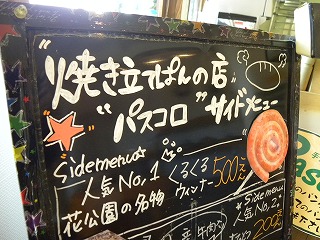 "焼き立てぱんの店
"パスコロ" サイドメニュー
Sidemenu☆
人気No.1
花公園の名物
くるくる
ウィンナー 500円
*Sidemenu
人気No.2*
200円